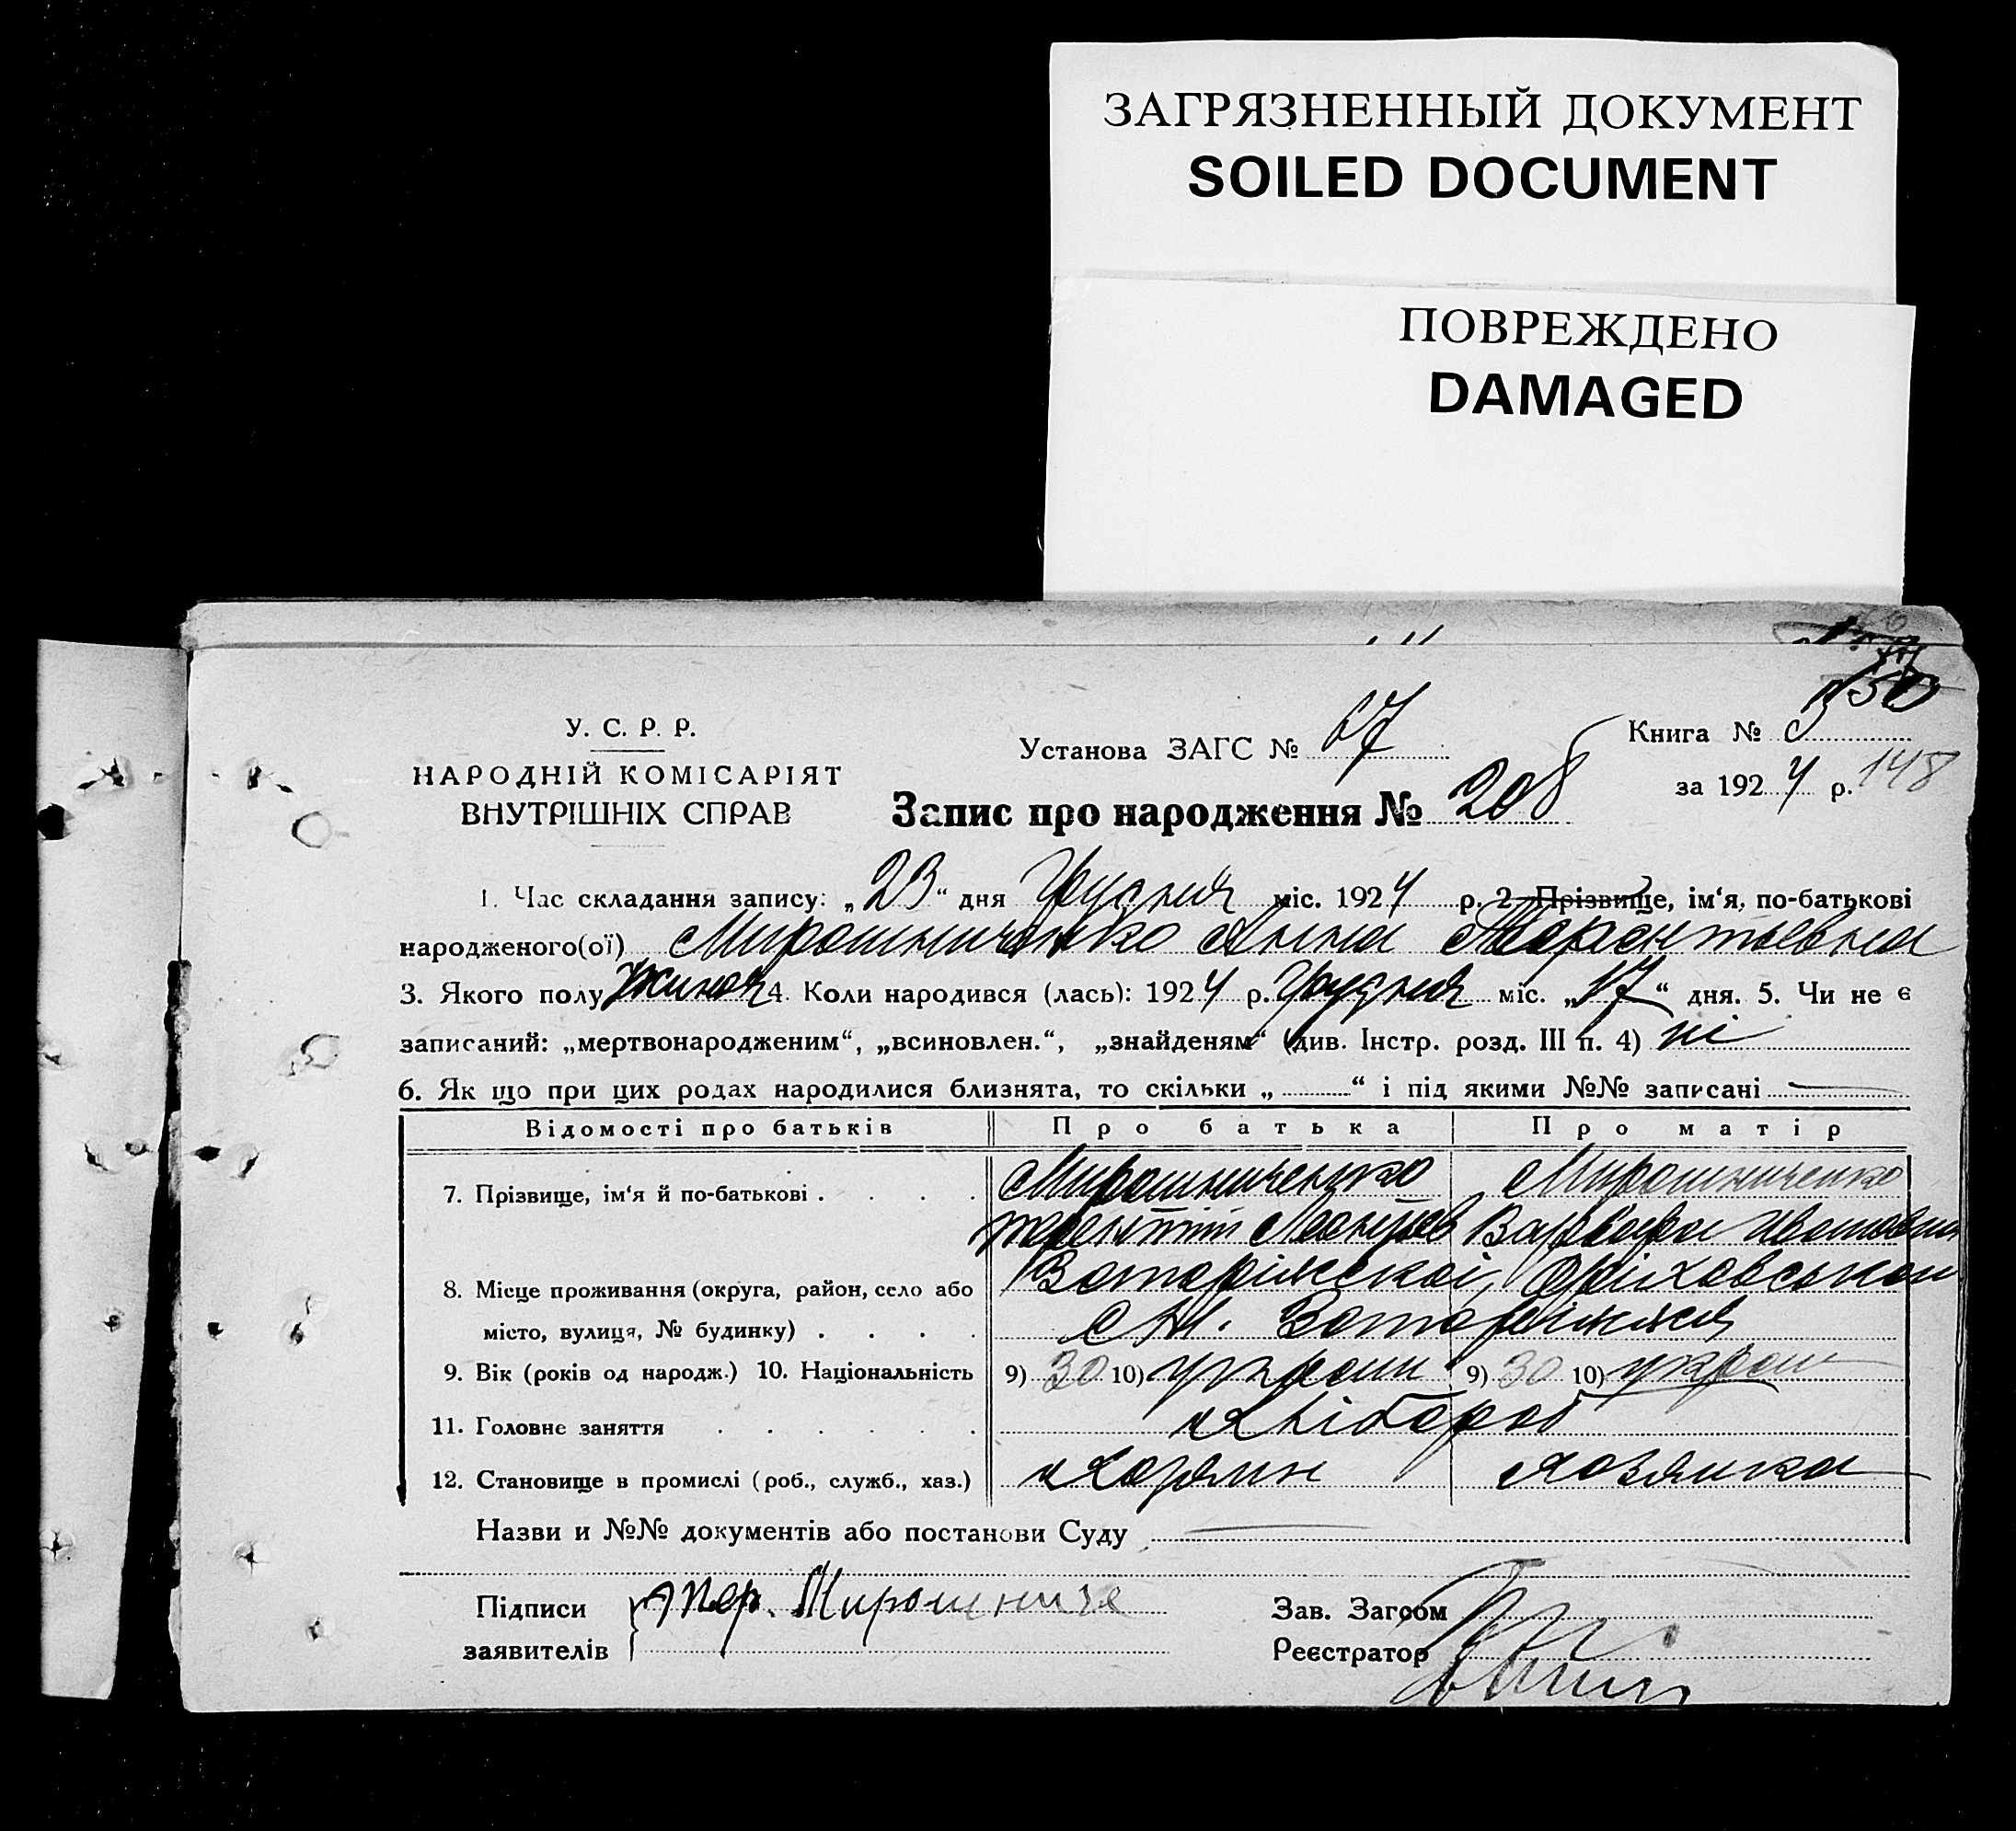 ЗАГРЯЗНЕННЫЙ ДОКУМЕНТ
SOILED DOCUMENT
ПОВРЕЖДЕНО
DAMAGED
150
У. С. Р. Р.
НАРОДНІЙ КОМІСАРІЯТ
ВНУТРІШНІХ СПРАВ
Установа ЗАГС № 67
Книга № 3
за 1924 р. 148
Запис про народження № 208
1. Час складання запису: „23“ дня Грудня міс. 1924 р. 2. Прізвище, ім‘я, по-батькові
народженого(ої) Мирошниченко Анна Терентьевна
3. Якого полу жиноч 4. Коли народився (лась): 1924 р. Грудня міс. „17“ дня. 5. Чи не є
записаний: „мертвонародженим“, „всиновлен.“, „знайденям“ (див. Інстр. розд. III п. 4) ні
6. Як що при цих родах народилися близнята, то скільки „ “ і під якими №№ записані
Відомості про батьків Про батька Про матір
7. Прізвище, ім‘я й по-батькові . . . . Мирошниченко Мирошниченко
Терентій Варвара Ивановна
8. Місце проживання (округа, район, село або
місто, вулиця, № будинку) . . . .
9. Вік (років од народж.) 10. Національність 9) 30 10) украин 9) 30 10) украин
11. Головне заняття . . . . . . Хлібороб
12. Становище в промислі (роб., служб., хаз.) Хозяин хозяйка
Назви и №№ документів або постанови Суду
Підписи Тер. Мирошниче
заявителів
Зав. Загсом
Реєстратор